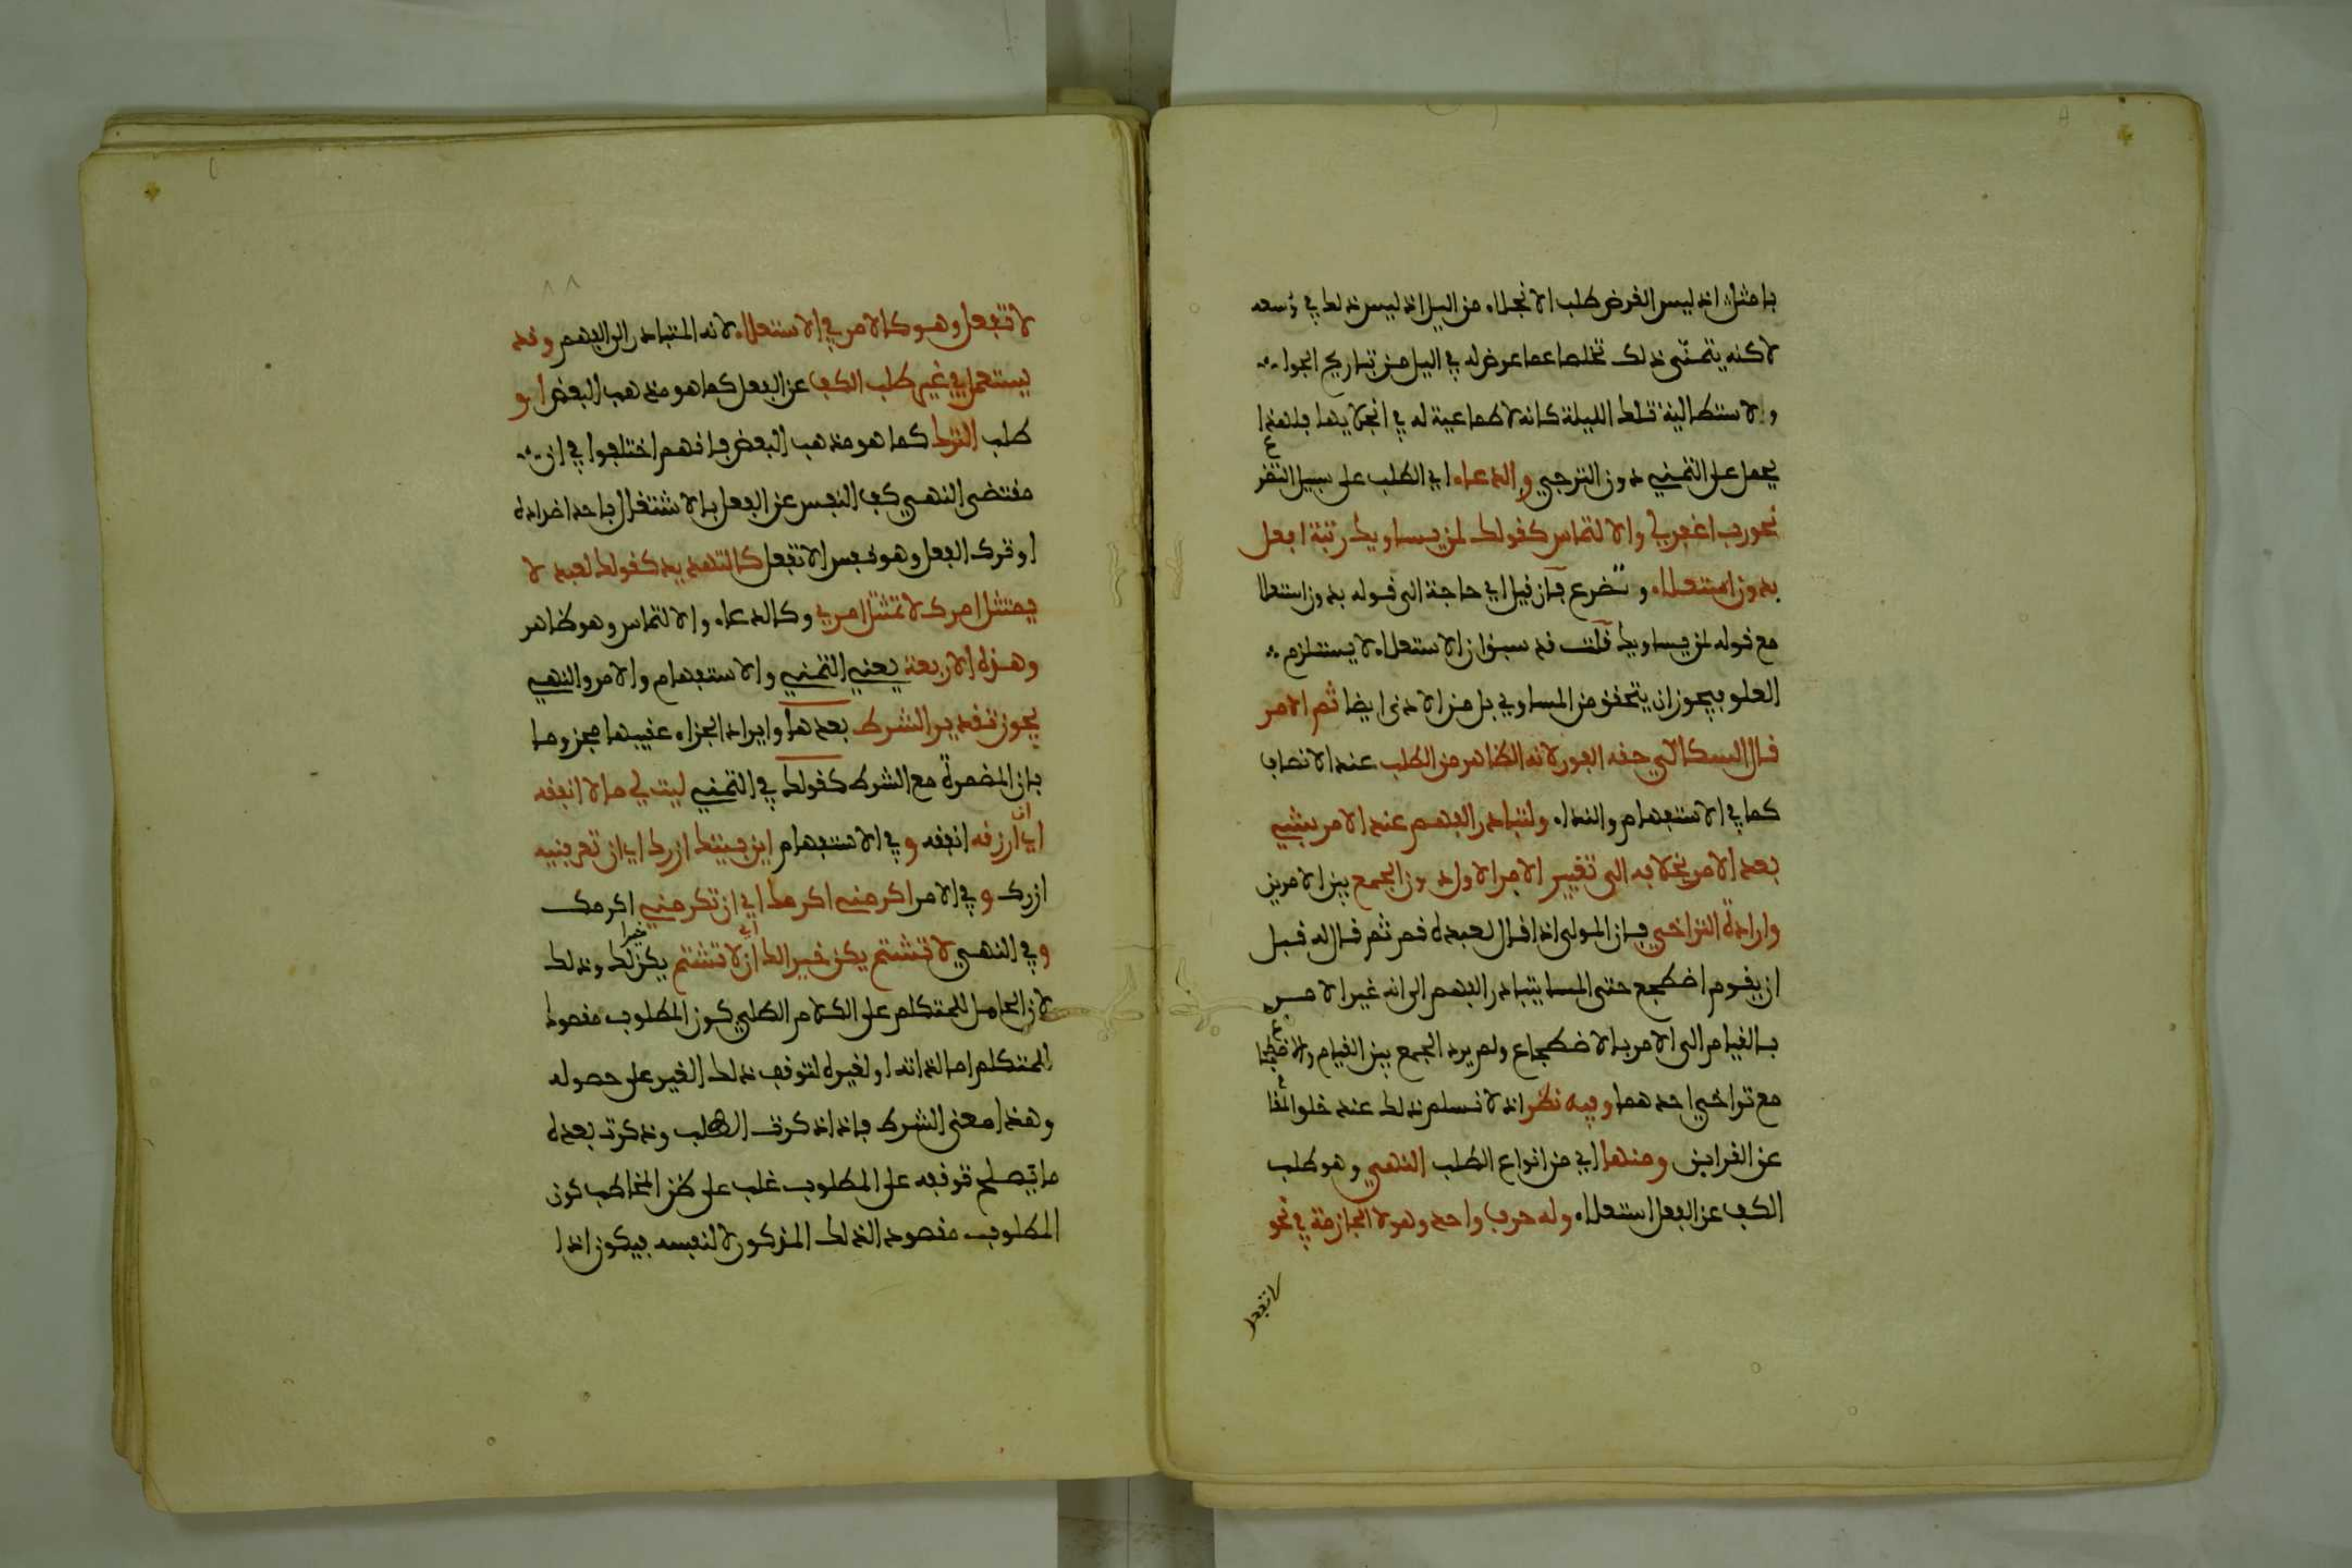 بامثل اذ ليس الغرض طلب الانجلاء من الليل اذ ليس ذلك في وسعه
لاكنه يتمنى ذلك تخلصا عما عرض له في الليل من تباريح الجوا
والاستطالية تلك الليلة كانه لا طماعية له في انجلايها فلهذا
يحمل على التمني دون الترجي والدعاء اي الطلب على سبيل التضرع
نحو رب اغفر لي والالتماس كقولك لمن يساويك رتبة افعل
بدون استعلاء وتضرع فان قيل اي حاجة الى قوله بدون استعلا
مع قوله لمن يساويك قلت قد سبق ان الاستعلاء لا يستلزم
العلو فيجوز ان يتحقق من المساوي بل من الادنى ايضا ثم الامر
قال السكاكي حقه الفور لانه الظاهر من الطلب عند الانصاف
كما في الاستفهام والنداء ولتبادر الفهم عند الامر بشيء
بعد الامر بخلافه الى تغيير الامر الاول دون الجمع بين الامرين
وارادة التراخي فان المولى اذا قال لعبده قم ثم قال له قبل
ان يقوم اضطجع حتى المسا يتبادر الفهم الى انه غير الامر
بالقيام الى الامر بالاضطجاع ولم يرد الجمع بين القيام والاضطجاع
مع تراخي احدهما وفيه نظر اذ لا نسلم ذلك عند خلو المقام
عن القراين ومنها اي من انواع الطلب النهي وهو طلب
الكف عن الفعل استعلاء وله حرف واحد وهو لا الجازمة في نحو
لا تفعل
لا تفعل وهو كالامر في الاستعلاء لانه المتبادر الى الفهم وقد
يستعمل في غير طلب الكف عن الفعل كما هو مذهب البعض او
طلب الترك كما هو مذهب البعض فانهم اختلفوا في ان
مقتضى النهي كف النفس عن الفعل بالاشتغال باحد اضداده
او ترك الفعل وهو نفس لا تفعل كالتهديد كقولك لعبد لا
يمتثل امرك لا تمتثل امري وكالدعاء والالتماس وهو ظاهر
وهذه الاربعة يعني التمني والاستفهام والامر والنهي
يجوز تقدير الشرط بعدها وايراد الجزاء عقيبها مجزوما
بان المضمرة مع الشرط كقولك في التمني ليت لي مالا انفقه
اي ان ارزقه انفقه وفي الاستفهام اين بيتك ازرك اي ان تعرفنيه
ازرك وفي الامر اكرمني اكرمك اي ان تكرمني اكرمك
وفي النهي لا تشتم يكن خيرا لك اي ان لا تشتم يكن خيرا لك وذلك
لان الحامل للمتكلم على الكلام الطلبي كون المطلوب مقصود
للمتكلم اما لذاته او لغيره لتوقف ذلك الغير على حصوله
وهذا معنى الشرط فاذا ذكرت الطلب وذكرت بعده
ما يصلح توقفه على المطلوب غلب على ظن المخاطب كون
المطلوب مقصودا لذلك المذكور لا لنفسه فيكون اذا